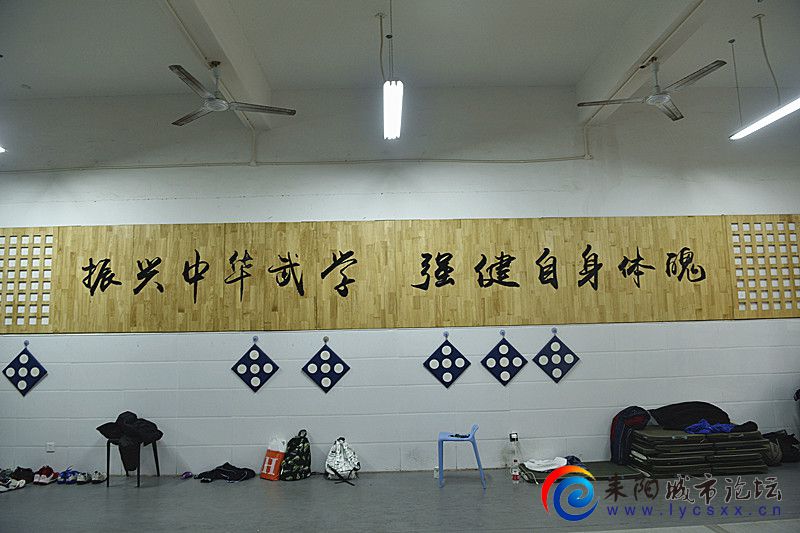 振兴中华武学 强健自身体魄
H
耒阳城市论坛
www.lycsxx.cn